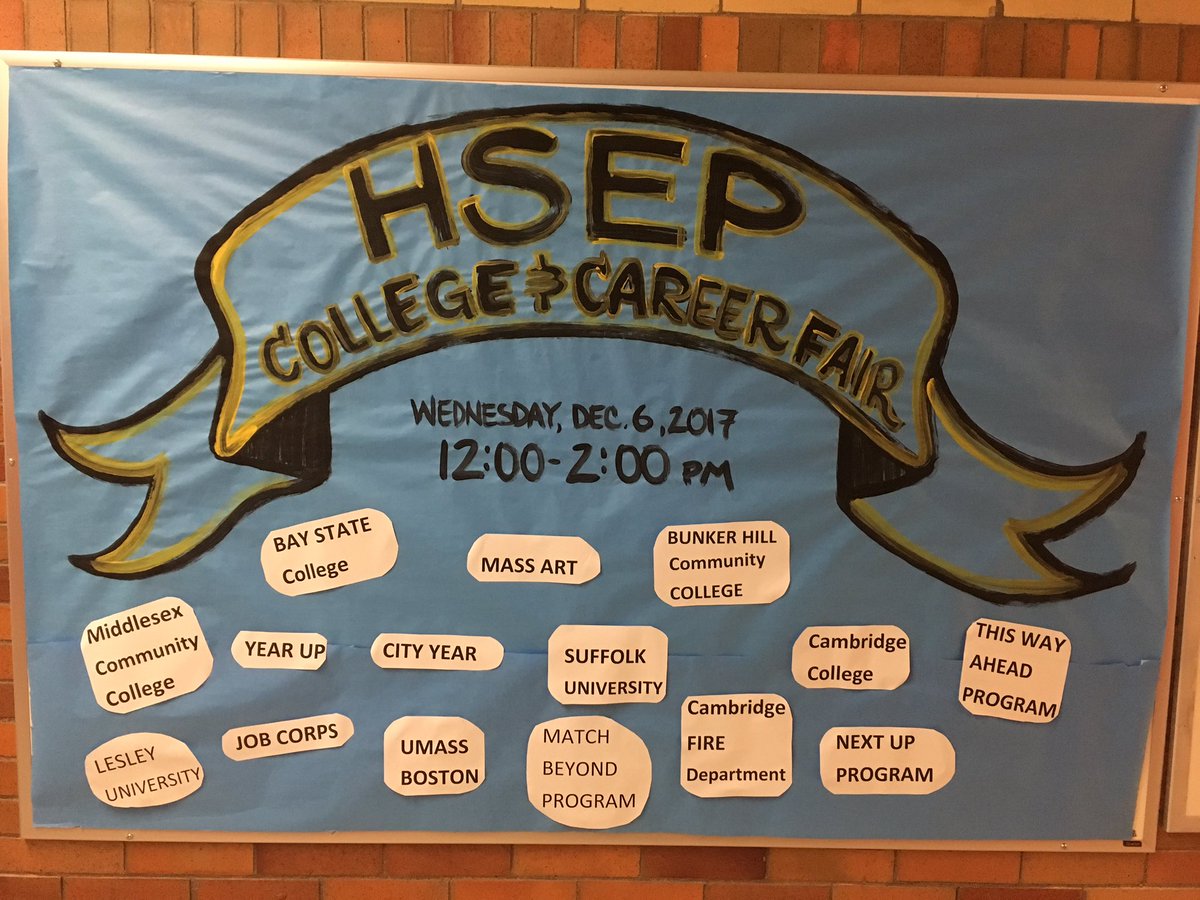 HSEP
COLLEGE & CAREER FAIR
WEDNESDAY, DEC. 6, 2017
12:00-2:00 PM
BAY STATE
College
MASS ART
BUNKER HILL
Community
COLLEGE
Middlesex
Community
College
YEAR UP
CITY YEAR
SUFFOLK
UNIVERSITY
Cambridge
College
THIS WAY
AHEAD
PROGRAM
LESLEY
UNIVERSITY
JOB CORPS
UMASS
BOSTON
MATCH
BEYOND
PROGRAM
Cambridge
FIRE
Department
NEXT UP
PROGRAM